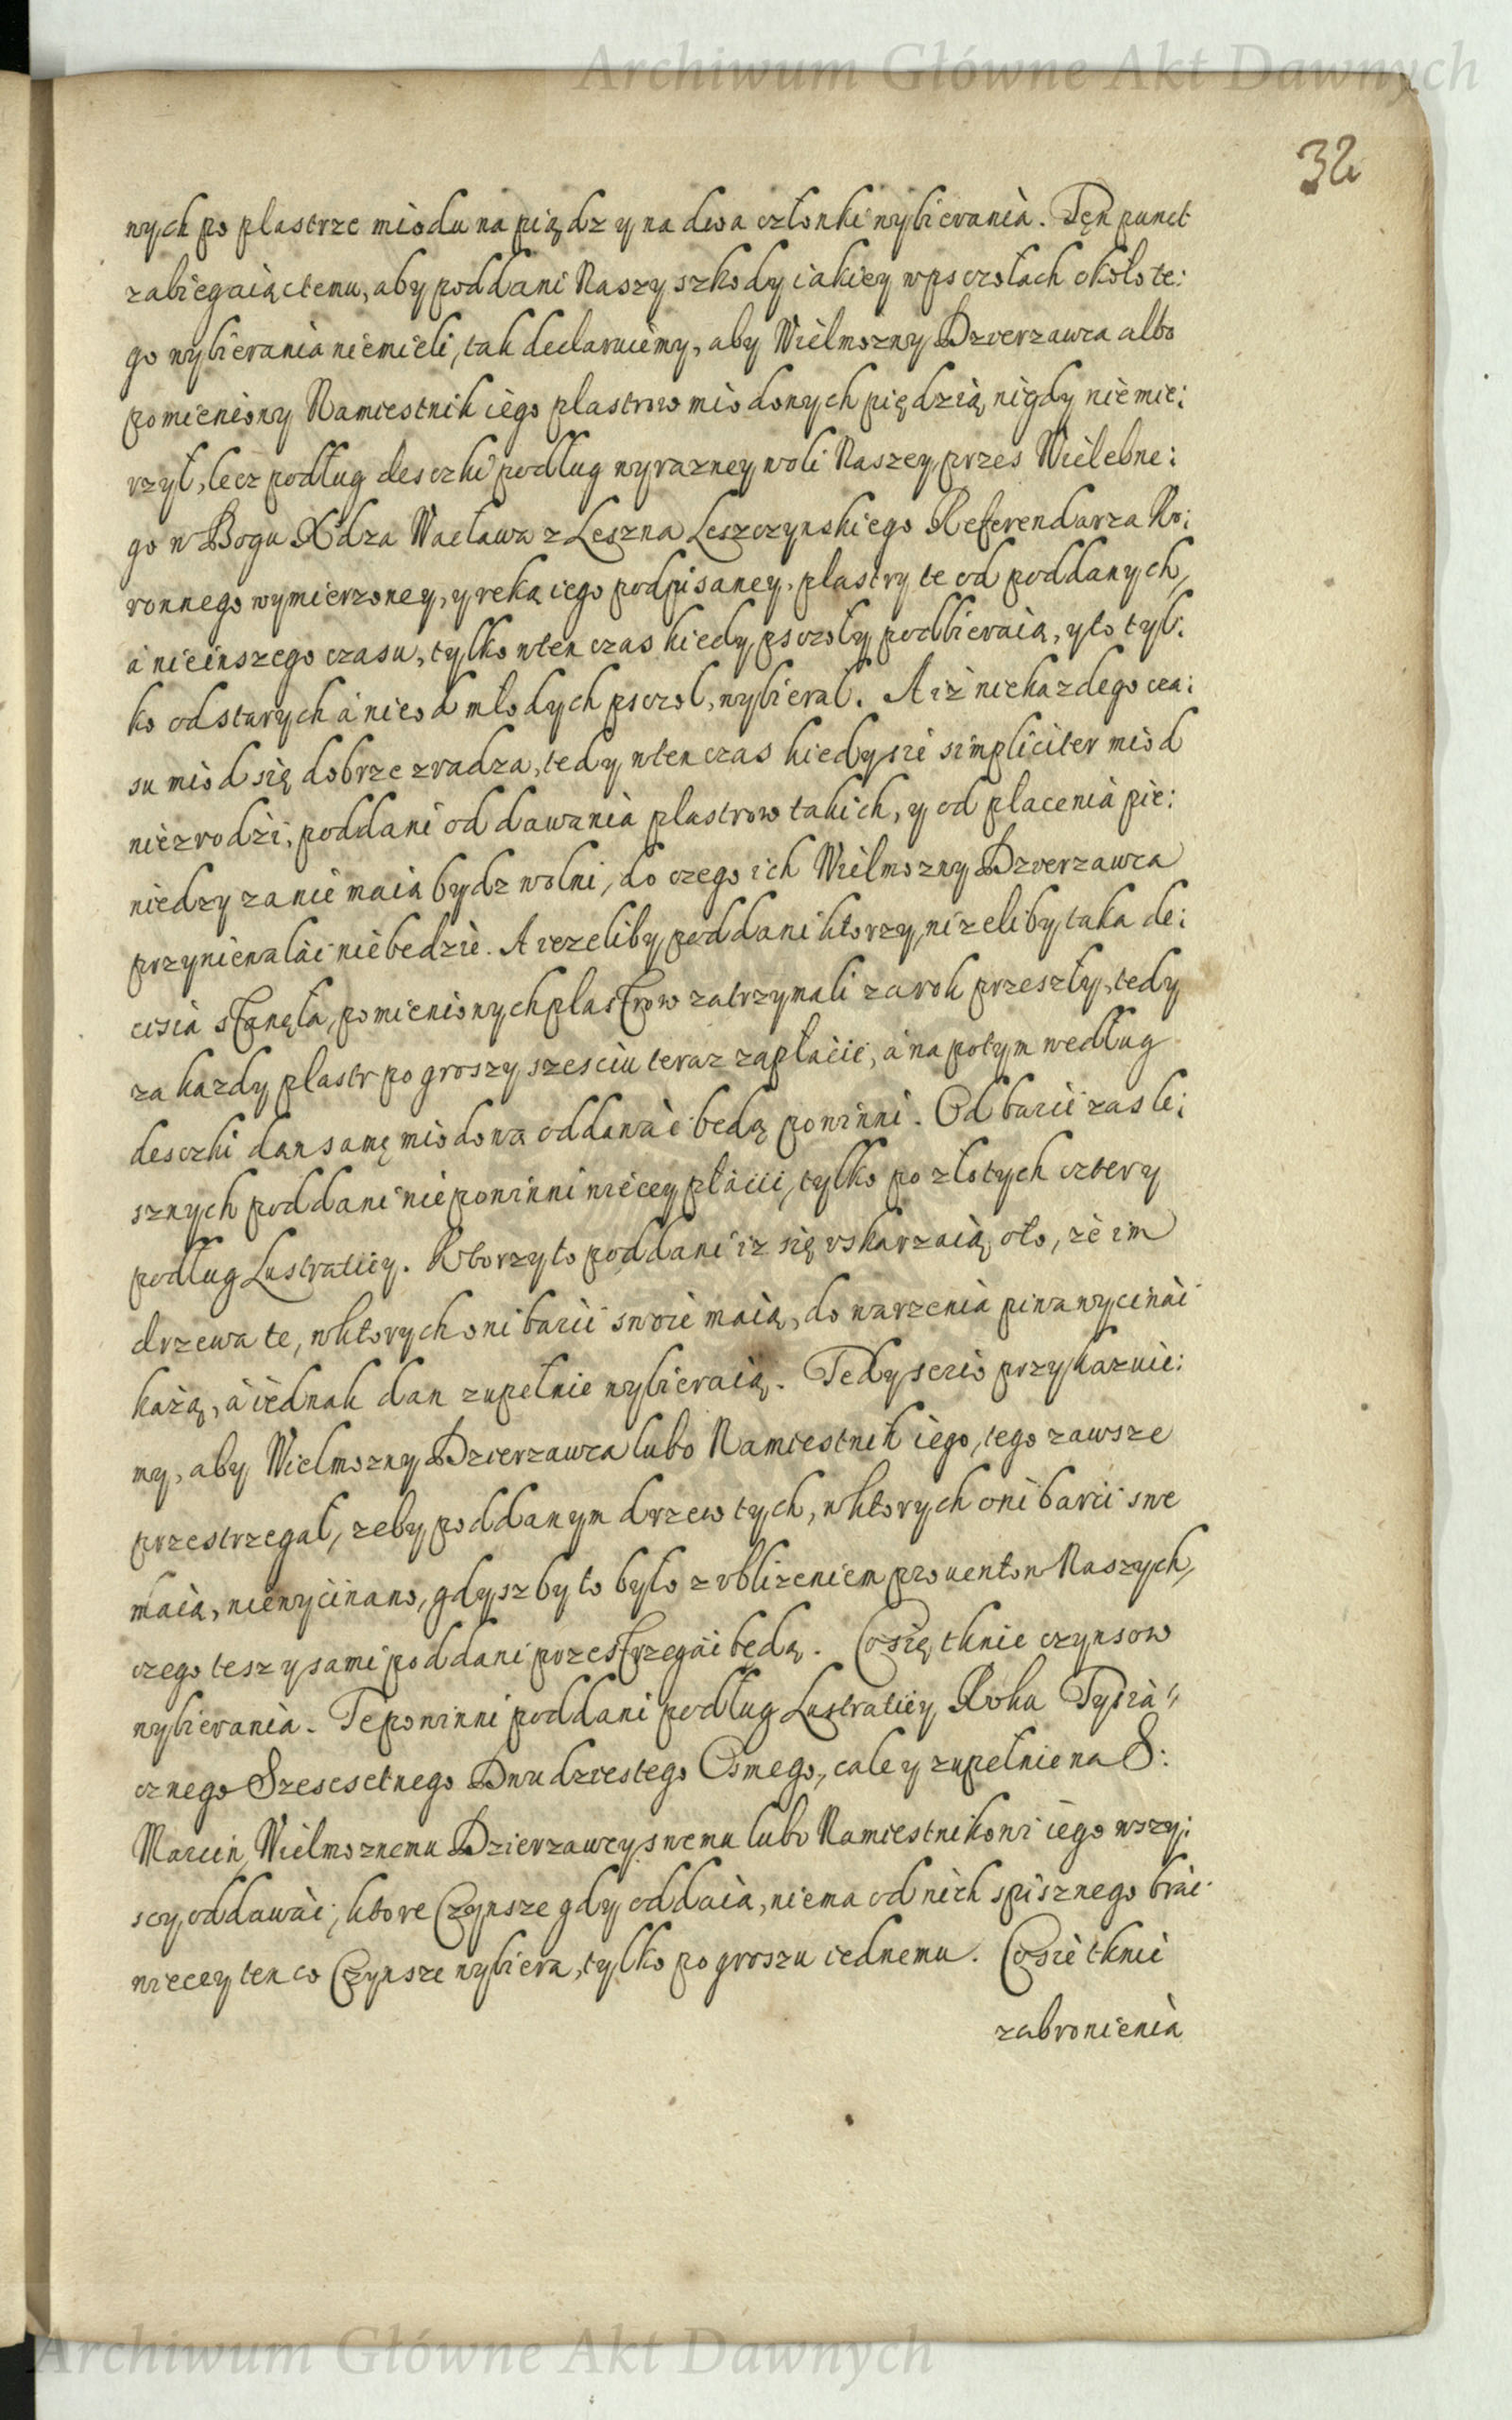 Archiwum Główne Akt Dawnych
32
nych po plastrze miodu na piądz y na dwa członki wybierania. Tęn punct
zabiegaiąc temu, aby poddani Naszy szkody iakiey w psczołach około te:
go wybierania niemieli, tak declaruiemy, aby Wielmozny Dzierzawca albo
pomieniony Namiestnik iego plastrow miodowych piędzią nigdy niemie:
rzył, lecz podług desczki podług wyrazney woli Naszey, przes Wielebne:
go w Bogu Xdza Wacława z Leszna Leszczynskiego Referendarza Ko:
ronnego wymierzoney, y reką iego podpisaney, plastry te od poddanych,
à nieinszego czasu, tylko wten czas kiedy psczoły podbieraią, y to tyl:
ko od starych à nie od młodych psczol, wybieral. A iż niekazdego cza:
su miod się dobrze zradza, tedy wten czas kiedy sie simpliciter miod
niezrodzi, poddani od dawania plastrow takich, y od placenia pie:
niedzy za nie maią bydz wolni, do czego ich Wielmozny Dzierzawca
przyniewalać niebedzie. A iezeliby poddani ktorzy, nizeliby taka de:
cisia stanęła, pomienionych plastrow zatrzymali za rok przeszły, tedy
za kazdy plastr po groszy szesciu teraz zapłacić, à na potym według
desczki dan samę miodową oddawać będą powinni. Od barci zas le:
sznych poddani niepowinni wiecey płacić, tylko po złotych cztery
podług Lustratiey. Ktorzy to poddani iz się uskarzaią oto, że im
drzewa te, w ktorych oni barci swoie maią, do warzenia piwa wycinać
każą, à iednak dan zupełnie wybieraią. Tedy serio przykazuie:
my, aby Wielmozny Dzierzawca lubo Namiestnik iego, tego zawsze
przestrzegal, zeby poddanym drzew tych, w ktorych oni barci swe
maią, niewycinano, gdysz by to było z ubliżeniem prouentow Naszych,
czego tesz y sami poddani przestrzegać będą. Co się tknie czynsow
wybierania. Te powinni poddani podług Lustratiey Roku Tysią:
cznego Szescsetnego Dwudziestego Osmego, cale y zupełnie na S:
Marcin, Wielmoznemu Dzierzawcy swemu lubo Namiestnikowi iego wszy:
scy, oddawać, ktore Czynsze gdy oddaią, niema od nich spisznego brać
wiecey ten co Czynsze wybiera, tylko po groszu iednemu. Co sie tknie
zabronienia
Archiwum Główne Akt Dawnych